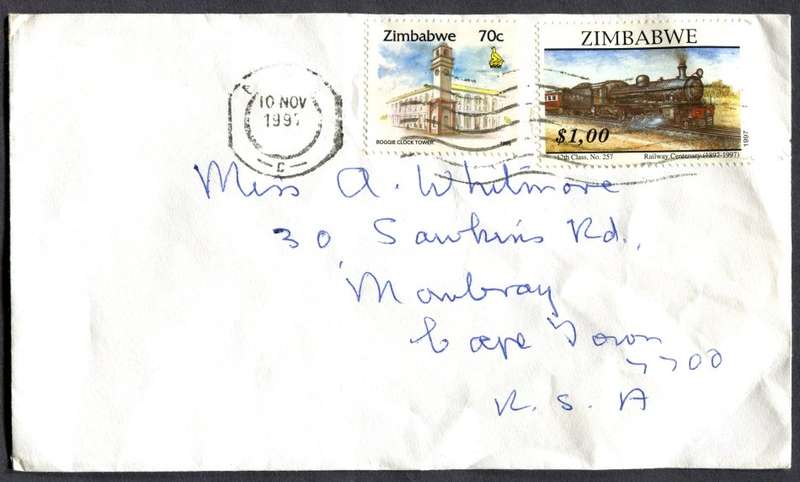 Zimbabwe 70c
BOGGIE CLOCK TOWER
ZIMBABWE
$1,00
12th Class, No. 257
Railway Centenary (1897-1997)
1997
10 NOV
1997
C
Miss A. Whitmore
30, Sawkins Rd.,
Mowbray
Cape Town
7700
R. S. A